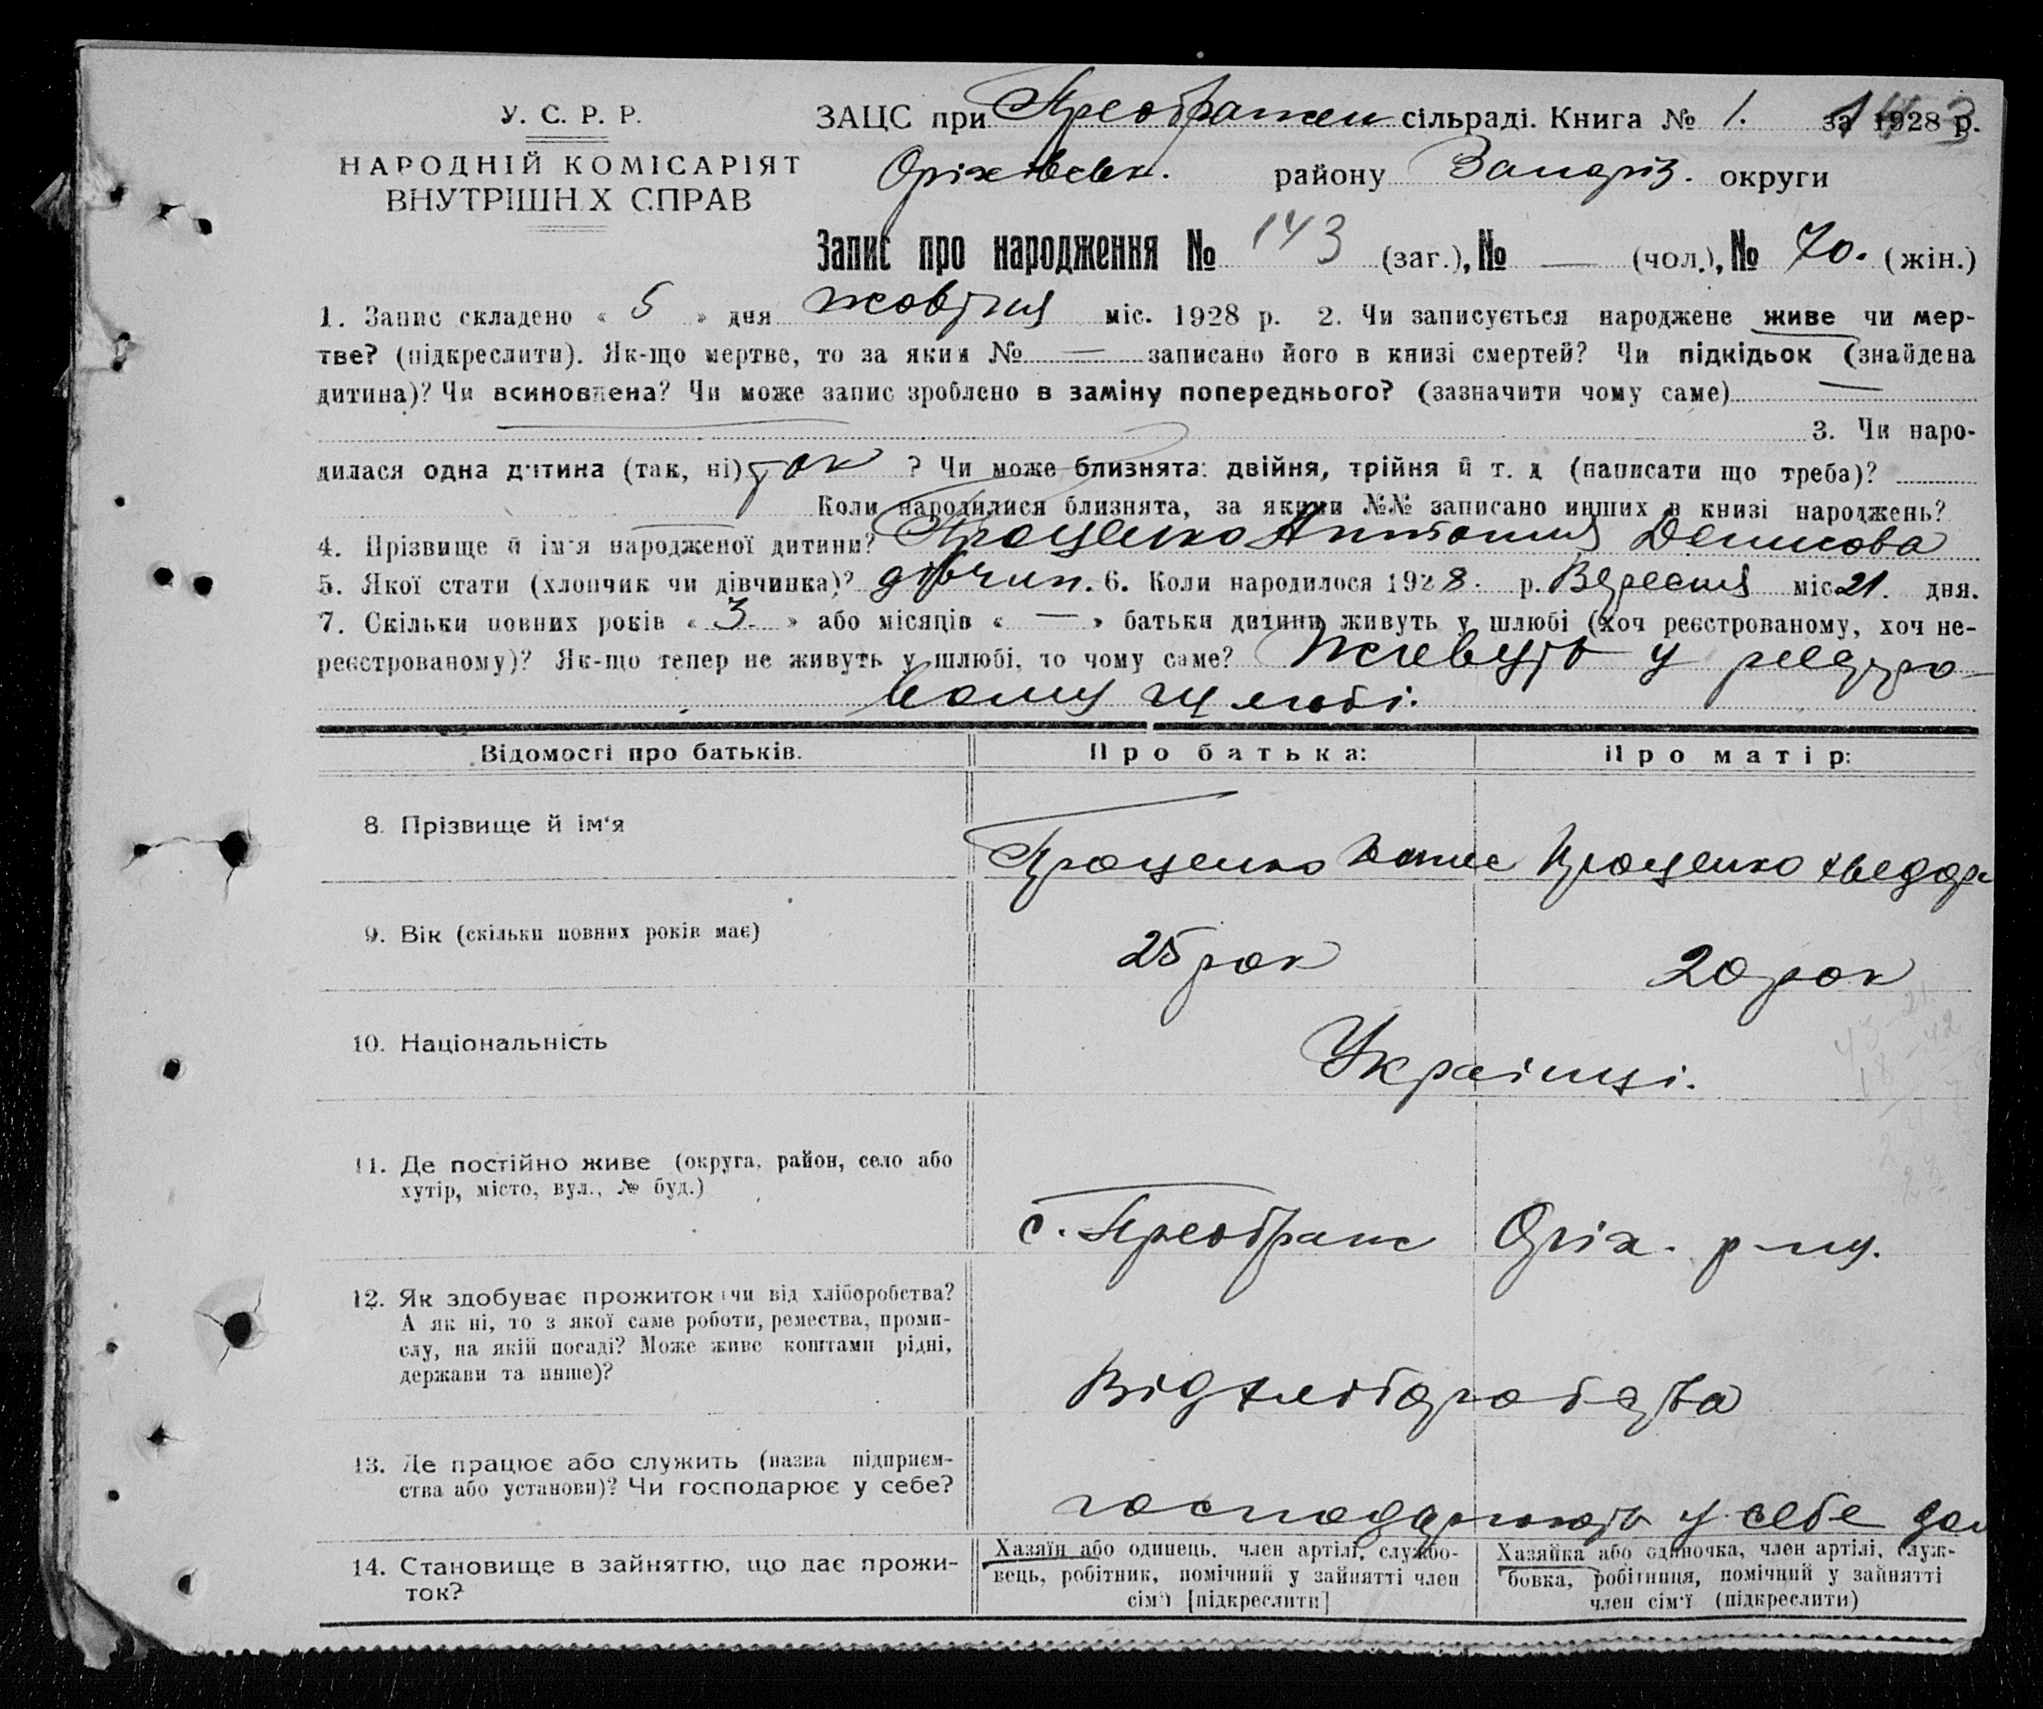 У. С. Р. Р.
НАРОДНІЙ КОМІСАРІЯТ
ВНУТРІШН Х СПРАВ
ЗАЦС при Преображен сільраді. Книга № 1. за 1928 р.
143
Оріхівськ. району Запоріз. округи
Запис про народження № 143 (заг.), № — (чол.), № 70. (жін.)
1. Запис складено « 5 » дня жовтня міс. 1928 р. 2. Чи записується народжене живе чи мер-
тве? (підкреслити). Як-що мертве, то за яким № — записано його в книзі смертей? Чи підкідьок (знайдена
дитина)? Чи всиновлена? Чи може запис зроблено в заміну попереднього? (зазначити чому саме) —
3. Чи наро-
дилася одна дитина (так, ні) так ? Чи може близнята: двійня, трійня й т. д (написати що треба)?
Коли народилися близнята, за якими №№ записано инших в книзі народжень?
4. Прізвище й ім'я народженої дитини? Проценко Антонина Денисова
5. Якої стати (хлопчик чи дівчинка)? дівчин. 6. Коли народилося 1928. р. Вересня міс 21. дня.
7. Скільки повних років « 3 » або місяців « — » батьки дитини живуть у шлюбі (хоч реєстрованому, хоч не-
реєстрованому)? Як-що тепер не живуть у шлюбі, то чому саме? Живуть у реєстро-
ваному шлюбі.
Відомості про батьків. Про батька: Про матір:
8. Прізвище й ім'я
Проценко Денис Проценко Хведора
9. Вік (скільки повних років має)
25 рок 20 рок
10. Національність
Українці.
11. Де постійно живе (округа, район, село або
хутір, місто, вул., № буд.)
с. Преображ Оріх. р-ну.
12. Як здобуває прожиток (чи від хліборобства?
А як ні, то з якої саме роботи, ремества, проми-
слу, на якій посаді? Може живе коштами рідні,
держави та инше)?
Від хліборобства
13. Де працює або служить (назва підприєм-
ства або установи)? Чи господарює у себе?
господарюють у себе
14. Становище в зайняттю, що дає прожи-
ток?
Хазяїн або одинець, член артілі, службо-
вець, робітник, помічний у зайнятті член
сім'ї [підкреслити]
Хазяйка або одиночка, член артілі, служ-
бовка, робітниця, помічний у зайнятті
член сім'ї (підкреслити)